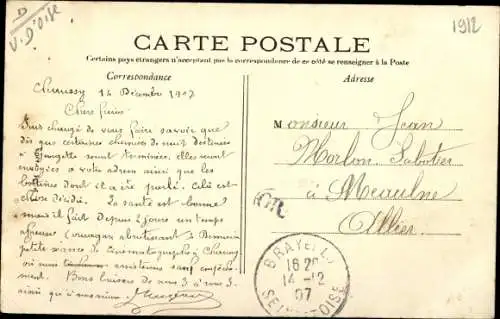 D
V. D'OISE
1912
CARTE POSTALE
Certains pays étrangers n'acceptant pas la correspondance de ce côté se renseigner à la Poste
Correspondance
Adresse
14 Décembre 1907
Chers frères
chargé de vous faire savoir que
dès que certaines chemises de nuit destinées
à Georgette seront terminées, elles seront
envoyées à votre adresse ainsi que les
bottines dont il a été parlé. Cela est
chose décidée. La santé est bonne
mais il fait depuis 2 jours un temps
affreux (ouragan
petite séance de cinématographe à
où nous assisterons sans
ment. Bons baisers de nous 3 à vous 3
ainsi qu'à
Monsieur Jean
Morlon Sabotier
à Meaulne
Allier
OR
BRAY-ET-L
16 20
14 -12
07
SEINE-ET-OISE